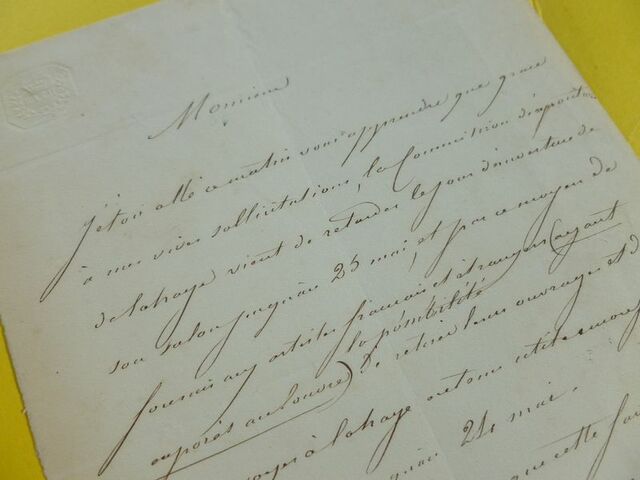 Monsieur
J'étois allé ce matin vous apprendre que grace
à mes vives sollicitations, la Commission d'exposition
de lahaye vient de retarder le jour d'ouverture de
son salon jusqu'au 25 mai, et par ce moyen de
fournir aux artistes français et étrangers (ayant
la possibilité
exposés au Louvre) de retirer leurs ouvrages et d
à lahaye en tems utile
24 mai.
que cette